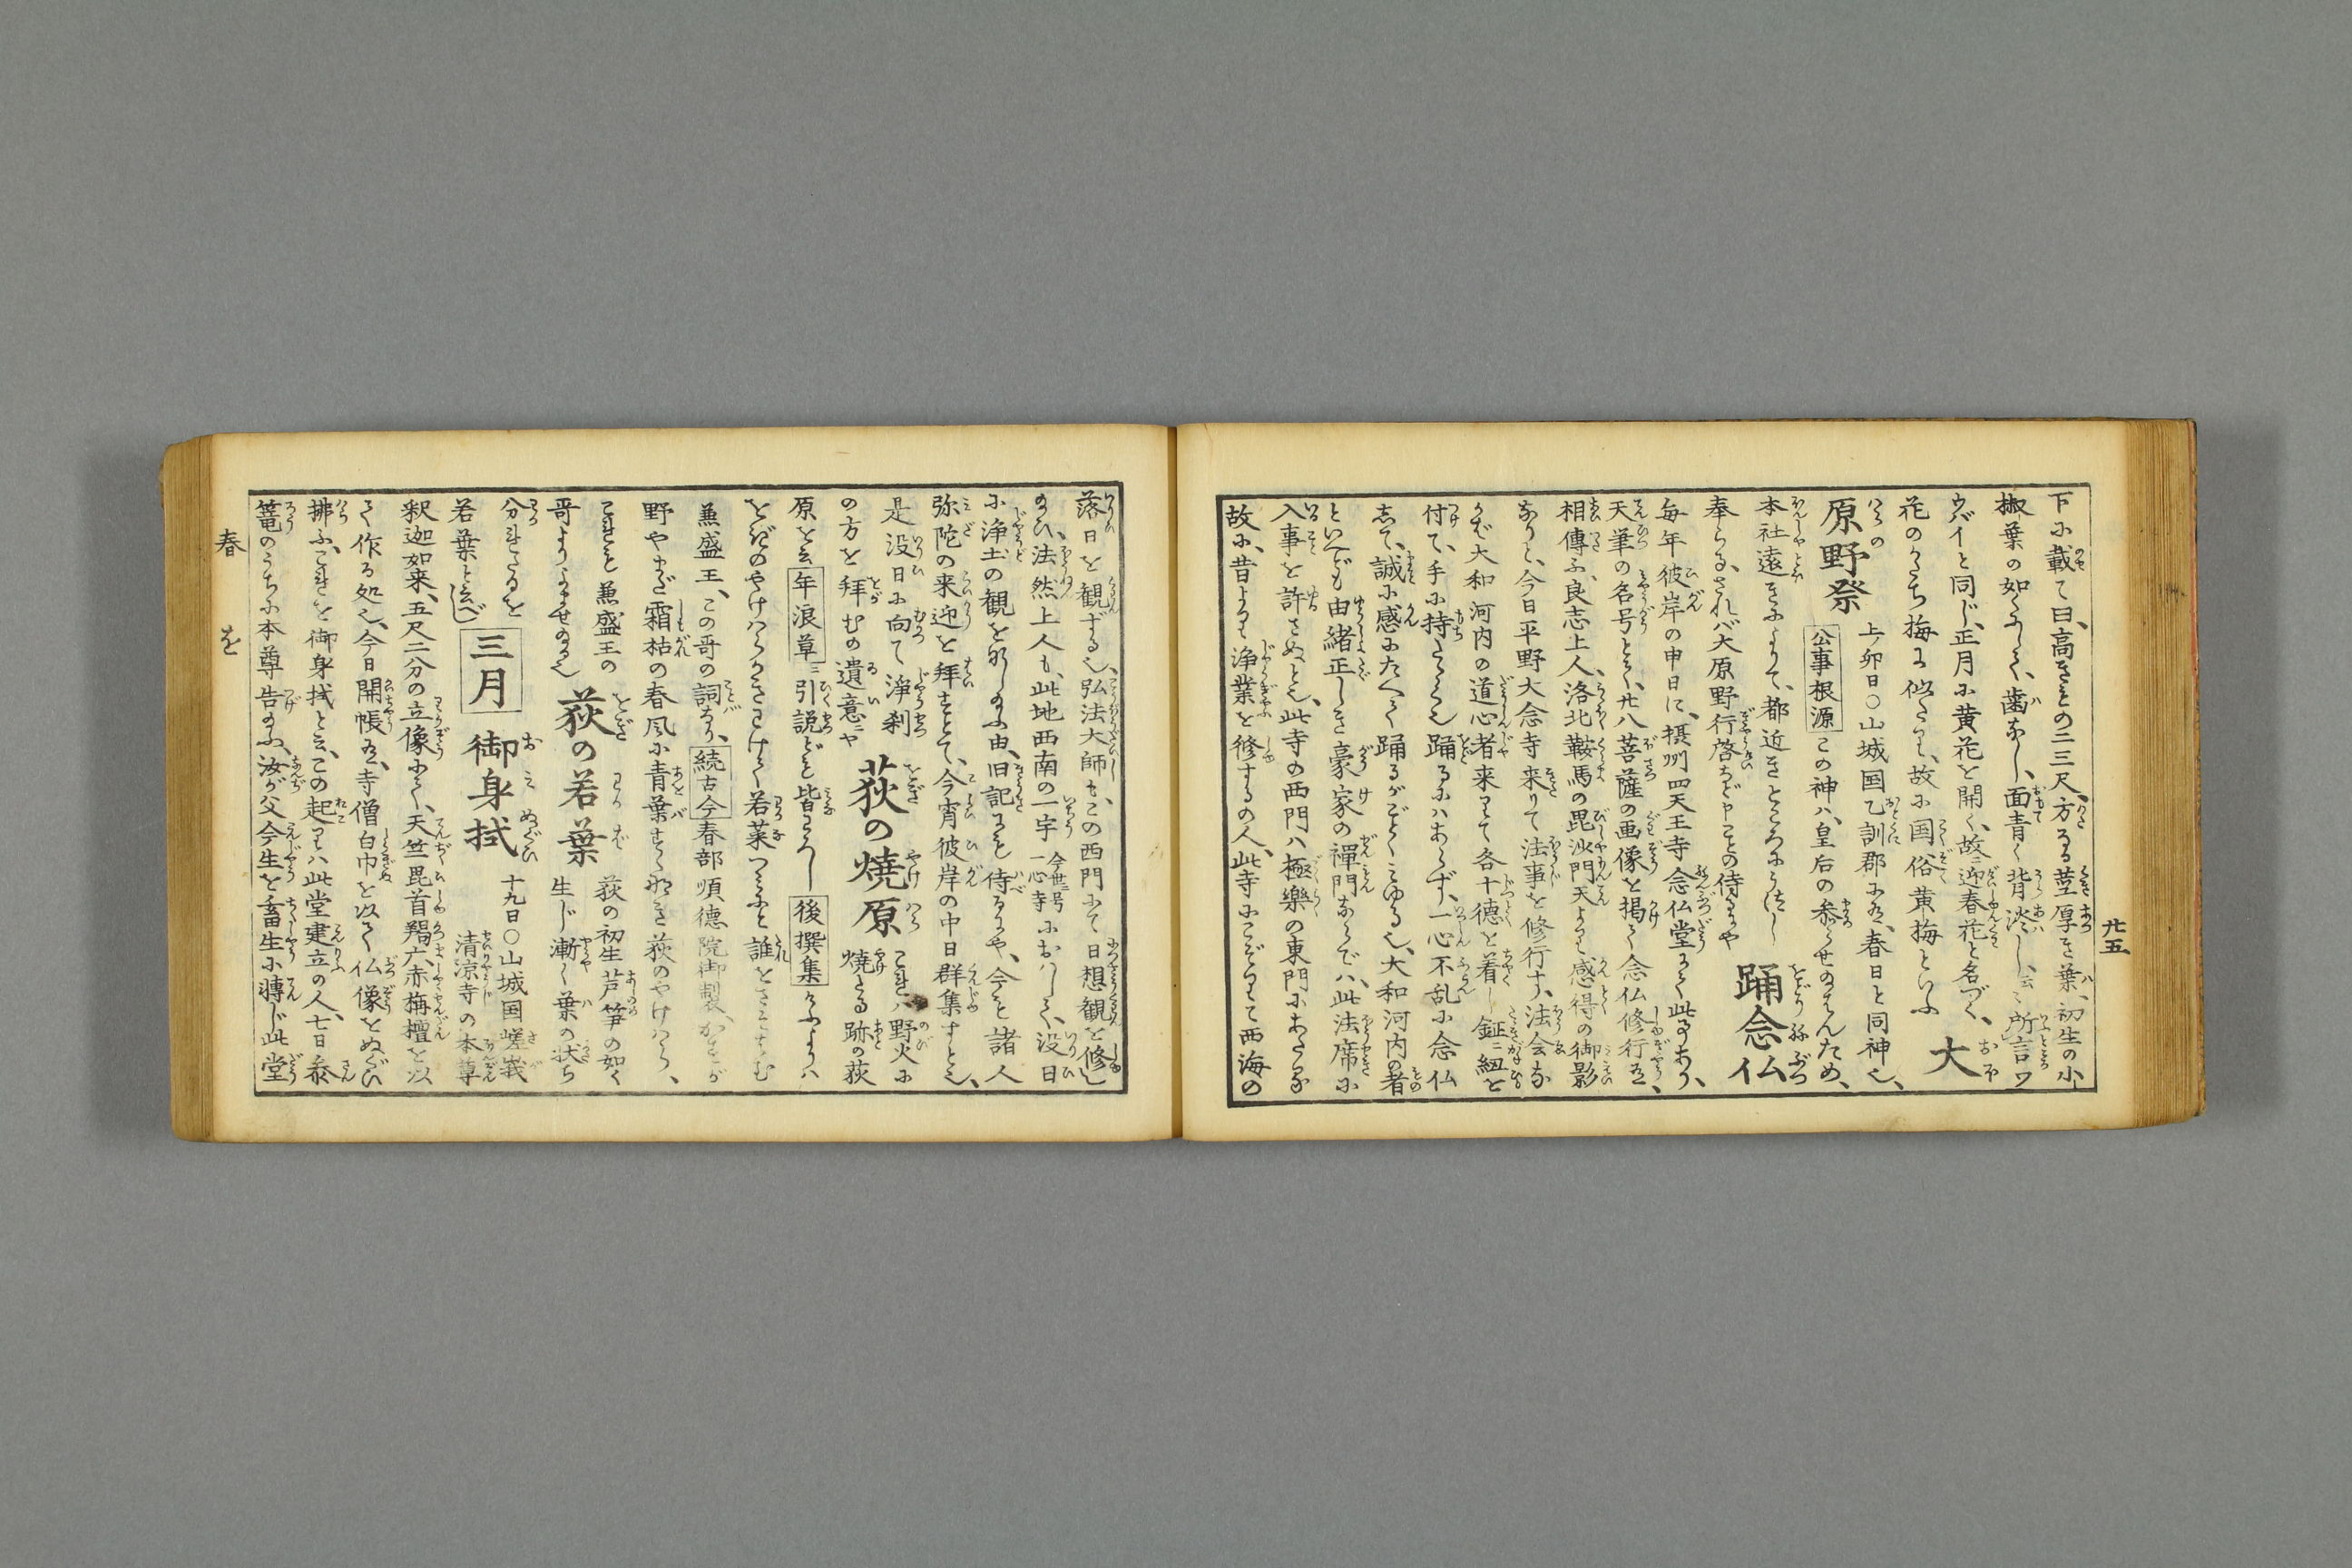 廿五
下に載て曰、高きもの二三尺、方なる茎厚き葉、初生の小
椒葉の如くにして、歯なし、面青く背淡し、云々所言ヲ
ウバイと同じ、正月に黄花を開く、故ニ迎春花と名づく、
花のかたち梅に似たり、故に国俗黄梅といふ 大
原野祭 上ノ卯日○山城国乙訓郡に在、春日と同神也、
公事根源 この神ハ、皇后の参らせ給はんため、
本社遠きによりて、都近きところにうつし
奉らる、されバ大原野行啓など申ことの侍るにや 踊念仏
毎年彼岸の申日に、摂州四天王寺念仏堂にて此事あり、
天筆の名号とて、廿八菩薩の画像を掲て念仏修行在、
相傳ふ、良志上人、洛北鞍馬の毘沙門天より感得の御影
なりと、今日平野大念寺来りて法事を修行す、法会な
かば大和河内の道心者来りて各十徳を着し鉦ニ紐を
付て、手に持たゝく也踊るにハあらず、一心不乱に念仏
して、誠に感にたへて踊るがごとくみゆる也、大和河内の者
といへども由緒正しき豪家の禅門ならでハ、此法席に
入事を許さぬとぞ、此寺の西門ハ極樂の東門にあたるが
故に、昔より浄業を修するの人、此寺にこぞりて西海の
落日を観ずる也、弘法大師も、この西門にて日想観を修し
給ひ、法然上人も、此地西南の一宇 今世ニ号一心寺 におハして、没日
に浄土の観をなし給ふ由、旧記にも侍るにや、今も諸人
弥陀の来迎を拜すとて、今宵彼岸の中日群集すとぞ、
是没日に向て浄刹の方を拜むの遺意ニや 荻の焼原 これハ野火に焼たる跡の荻
原を云 年浪草ニ引説ども皆わろし 後撰集 けふよりハ
をぎのやけハらかきわけて若菜つミにと誰をさそハむ
兼盛王、この哥の詞なり、 続古今 春部順徳院御製、かすが
野やまだ霜枯の春風に青葉すくなき荻のやけハら、
これも兼盛王の哥よりよませ給ふ也 荻の若葉 荻の初生芦笋の如く生じ漸く葉の状ち
分れたるを若葉と云べし 三月 御身拭 十九日○山城国嵯峨清凉寺の本尊
釈迦如来、五尺二分の立像にて、天竺毘首羯广、赤栴檀を以
て作る処也、今日開帳在、寺僧白巾を以て仏像をぬぐひ
拂ふ、これを御身拭と云、この起りハ此堂建立の人、七日参
篭のうちに本尊告給ふ、汝が父今生を畜生に轉じ此堂
春 を